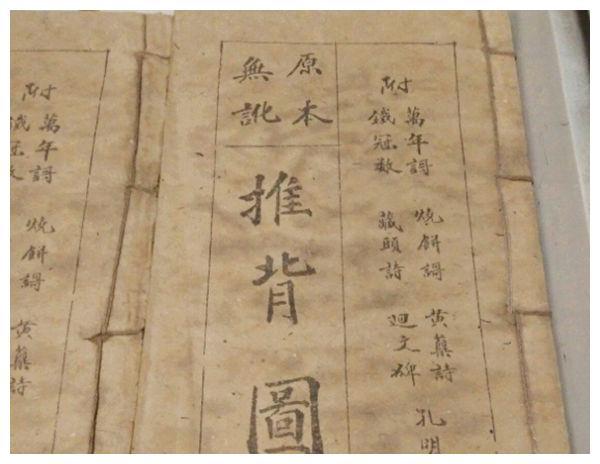 附
萬年謌 燒餅謌 黄蘗詩 孔明
鐵冠數 藏頭詩 迴文碑
原本
無訛
推背圖
附
萬年謌 燒餅謌 黄蘗詩
鐵冠數